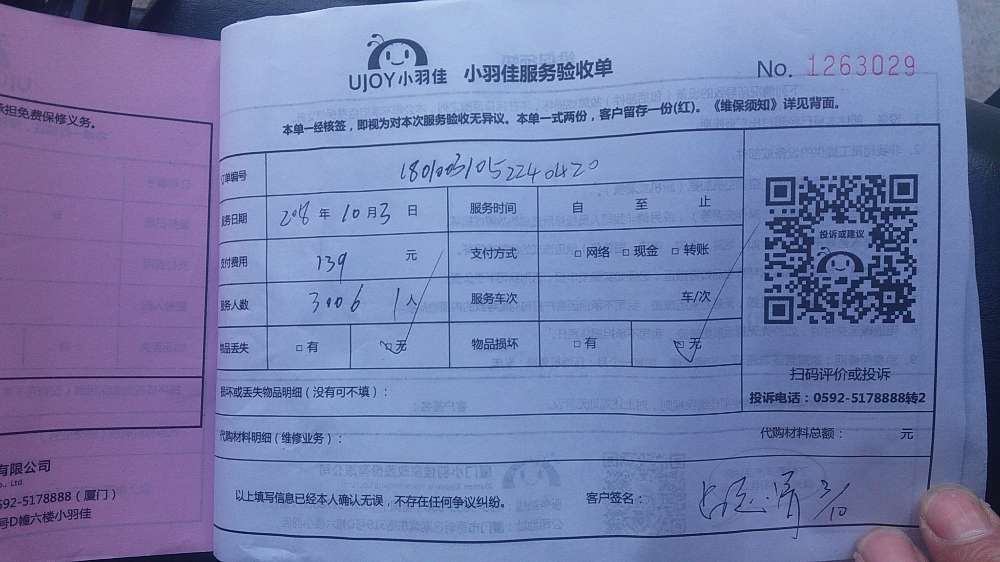 承担免费保修义务。
有限公司
., Ltd.
0592-5178888（厦门）
号D幢六楼小羽佳
UJOY小羽佳 小羽佳服务验收单 No. 1263029
本单一经核签，即视为对本次服务验收无异议。本单一式两份，客户留存一份(红)。《维保须知》详见背面。
订单编号 18010031052240420
服务日期 2018 年 10 月 3 日 服务时间 自 至 止
支付费用 139 元 支付方式 □ 网络 □ 现金 □ 转账
服务人数 3006 1人 服务车次 车/次
物品丢失 □ 有 □ 无 物品损坏 □ 有 □ 无
投诉或建议
扫码评价或投诉
投诉电话：0592-5178888转2
损坏或丢失物品明细（没有可不填）：
代购材料明细（维修业务）： 代购材料总额： 元
以上填写信息已经本人确认无误，不存在任何争议纠纷。 客户签名： 3/10